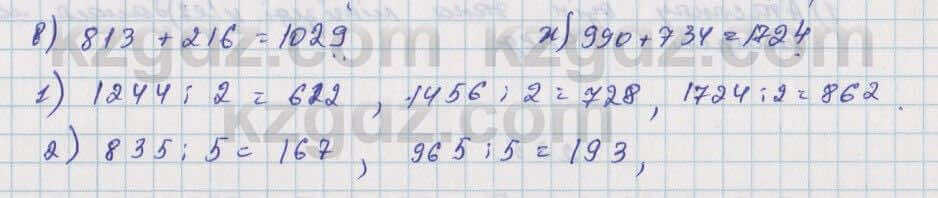 в) 813 + 216 = 1029, ж) 990 + 734 = 1724
1) 1244 : 2 = 622, 1456 : 2 = 728, 1724 : 2 = 862.
2) 835 : 5 = 167, 965 : 5 = 193,
kzgdz.com